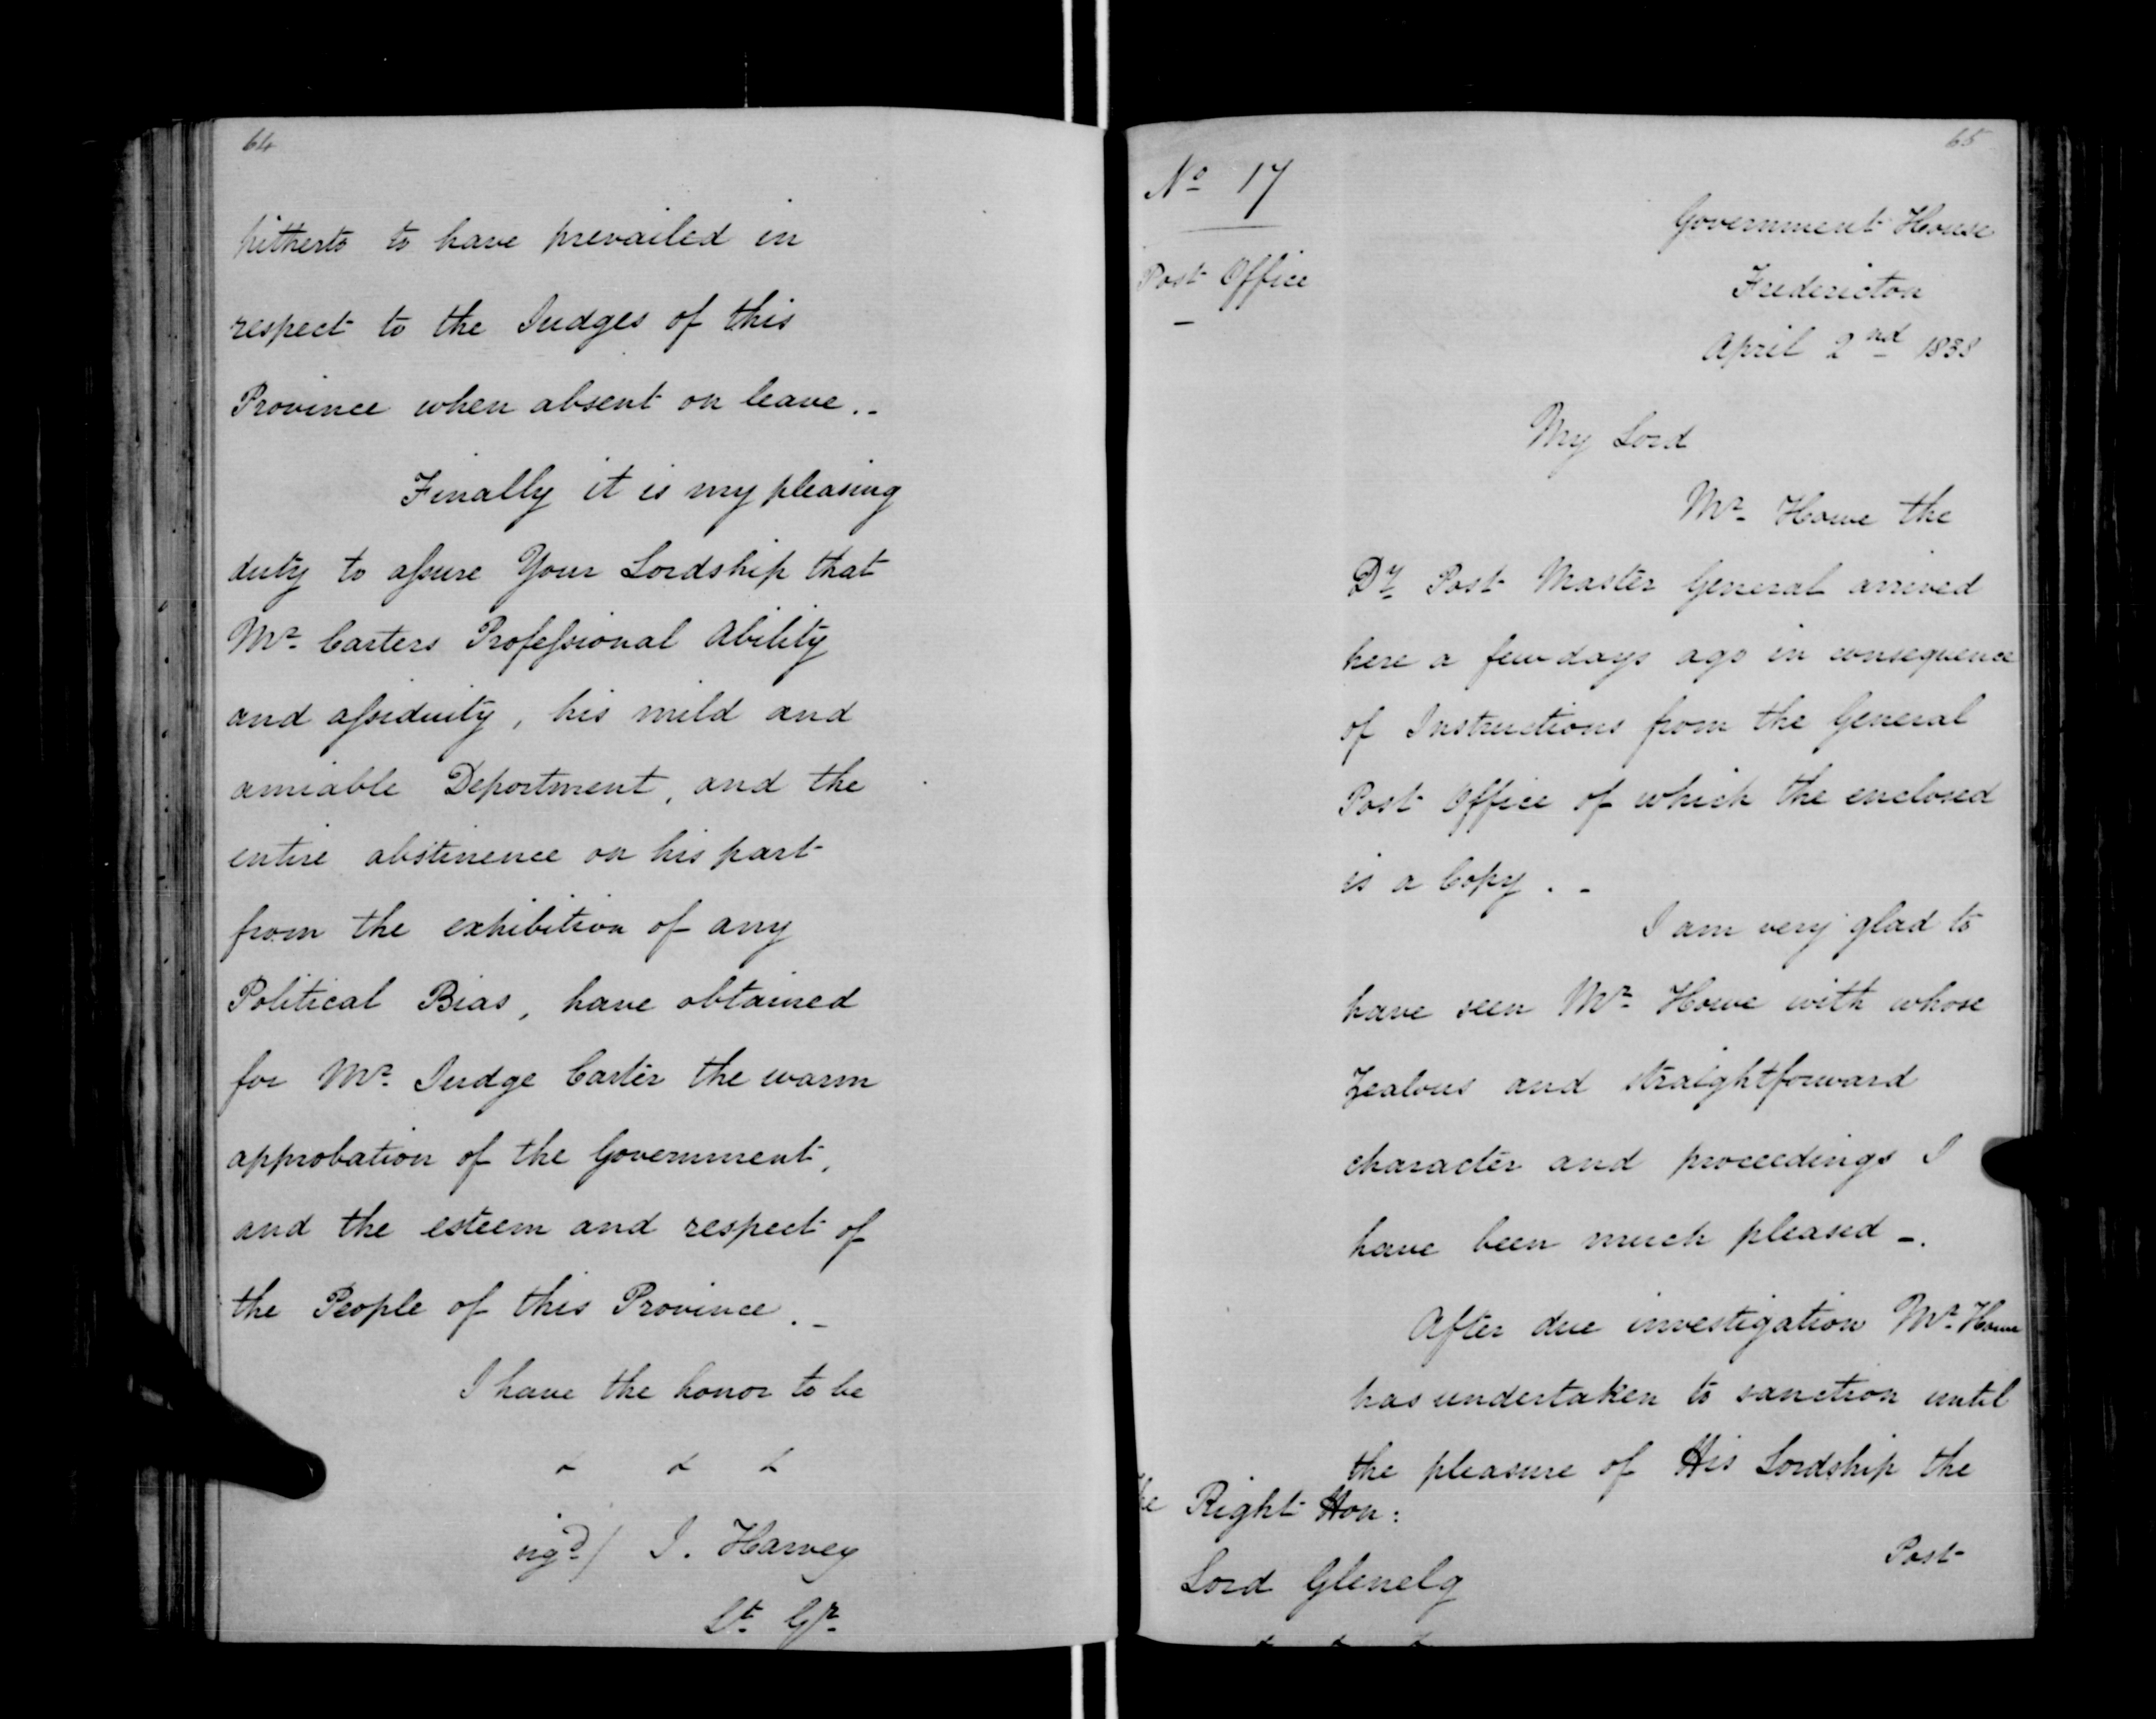 64
hitherto to have prevailed in
respect to the Judges of this
Province when absent on leave. -
Finally it is my pleasing
duty to assure Your Lordship that
Mr. Carters Professional Ability
and assiduity, his mild and
amiable Deportment, and the
entire abstinence on his part
from the exhibition of any
Political Bias, have obtained
for Mr. Judge Carter the warm
approbation of the Government,
and the esteem and respect of
the People of this Province. -
I have the honor to be
& & &
sigd/ J. Harvey
Lt. Gr.
65
No 17
Post Office
Government House
Fredericton
April 2nd 1838
My Lord
Mr. Howe the
Dy. Post Master General arrived
here a few days ago in consequence
of Instructions from the General
Post Office of which the enclosed
is a Copy. -
I am very glad to
have seen Mr. Howe with whose
Zealous and straightforward
character and proceedings I
have been much pleased -.
After due investigation Mr. Howe
has undertaken to sanction until
the pleasure of His Lordship the
Post
The Right Hon:
Lord Glenelg